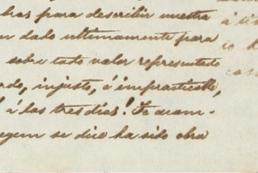 bras para describir nuestra
n dado ultimamente para
sobre todo valor representado
do, injusto, é impracticable,
á los tres dias! Te acam-
egun se dice ha sido obra